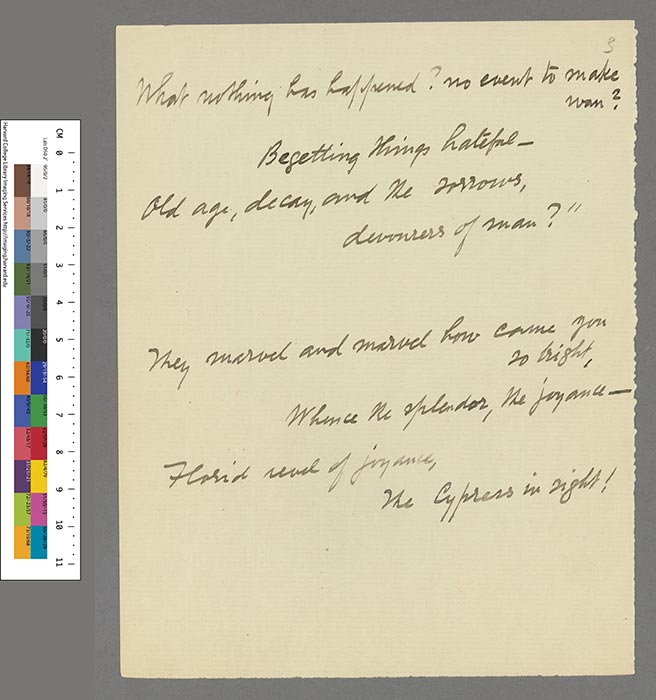 3
What nothing has happened? no event to make
wan?
Begetting things hateful—
Old age, decay, and the sorrows,
devourers of man?"
They marvel and marvel how came you
so bright,
Whence the splendor, the joyance—
Florid revel of joyance,
The Cypress in sight!
CM 0 1 2 3 4 5 6 7 8 9 10 11
Harvard College Library Imaging Services http://imaging.harvard.edu